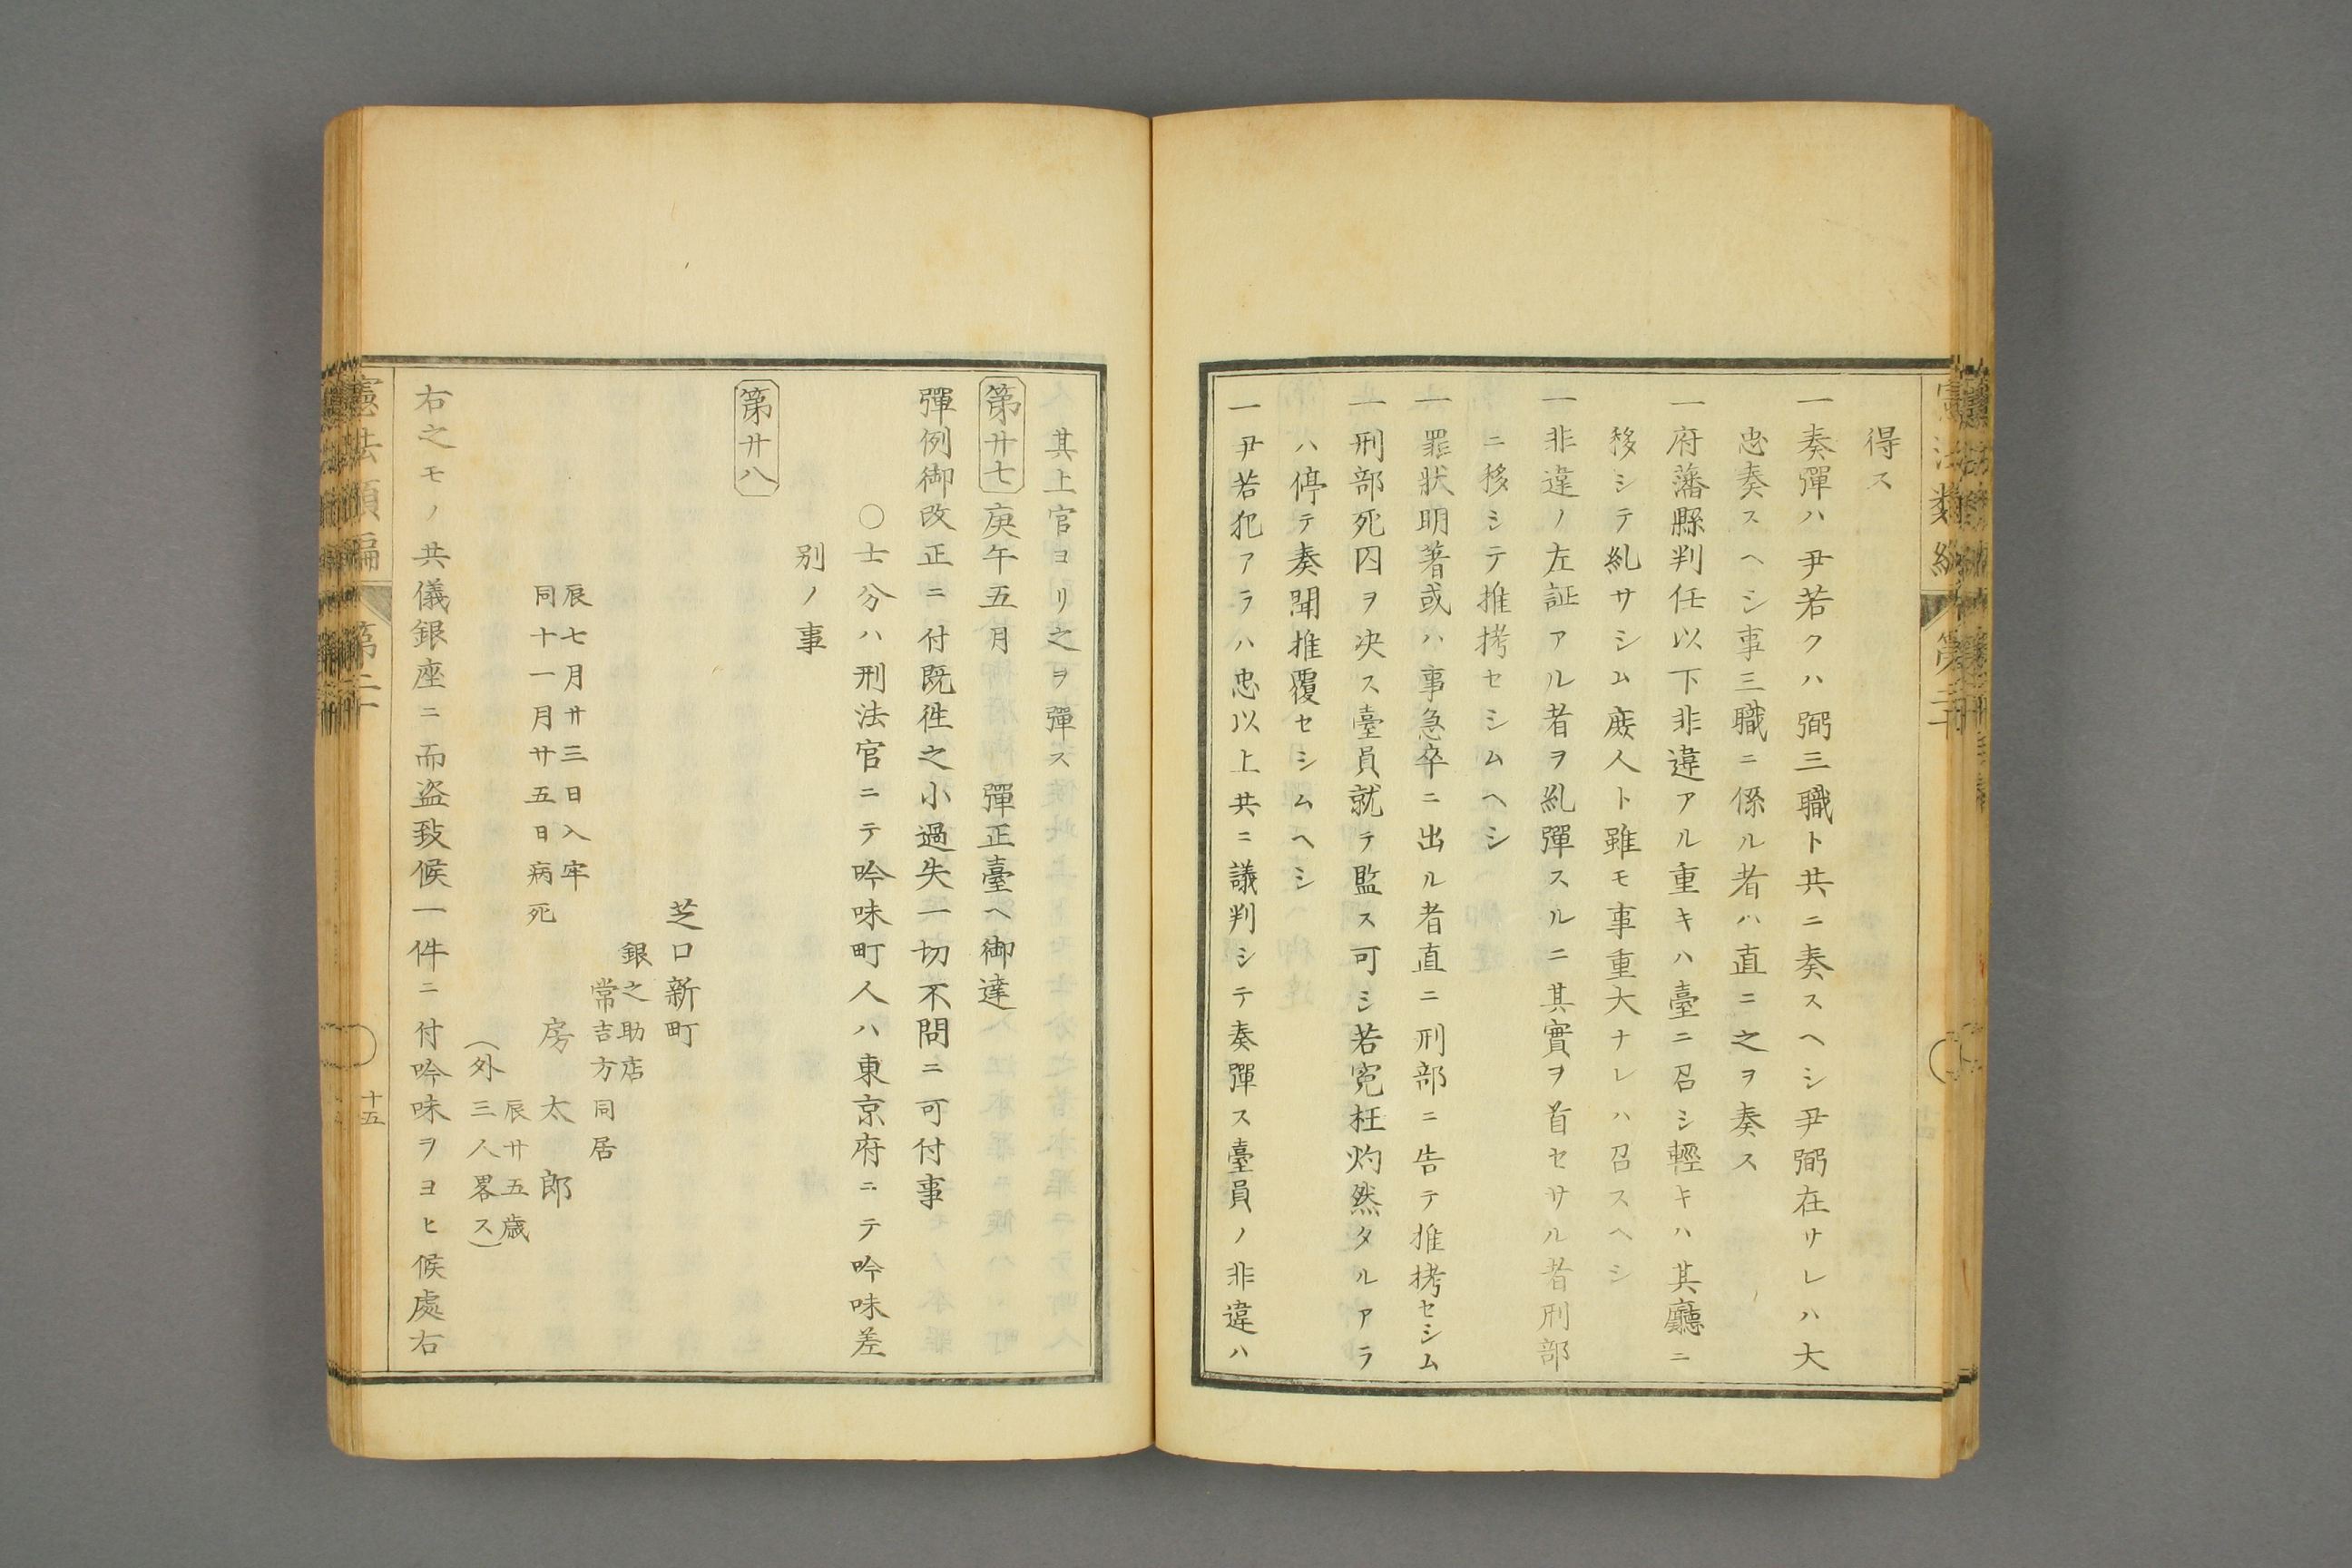 得ス
一奏彈ハ尹若クハ弼三職ト共ニ奏スヘシ尹弼在サレハ大
忠奏スヘシ事三職ニ係ル者ハ直ニ之ヲ奏ス
一府藩縣判任以下非違アル重キハ臺ニ召シ輕キハ其廳ニ
移シテ糺サシム廢人ト雖モ事重大ナレハ召スヘシ
一非違ノ左証アル者ヲ糺彈スルニ其實ヲ首セサル者刑部
ニ移シテ推拷セシムヘシ
一罪状明著或ハ事急卒ニ出ル者直ニ刑部ニ告テ推拷セシム
一刑部死囚ヲ决ス臺員就テ監ス可シ若寃枉灼然タルアラ
ハ停テ奏聞推覆セシムヘシ
一尹若犯アラハ忠以上共ニ議判シテ奏彈ス臺員ノ非違ハ
其上官ヨリ之ヲ彈ス
第廿七 庚午五月 彈正臺ヘ御達
彈例御改正ニ付既徃之小過失一切不問ニ可付事
〇士分ハ刑法官ニテ吟味町人ハ東京府ニテ吟味差
別ノ事
第廿八
芝口新町
銀之助店
常吉方同居
辰七月廿三日入牢
同十一月廿五日病死
房太郎
辰廿五歳
(外三人畧ス)
右之モノ共儀銀座ニ而盗致候一件ニ付吟味ヲヨヒ候處右
十五